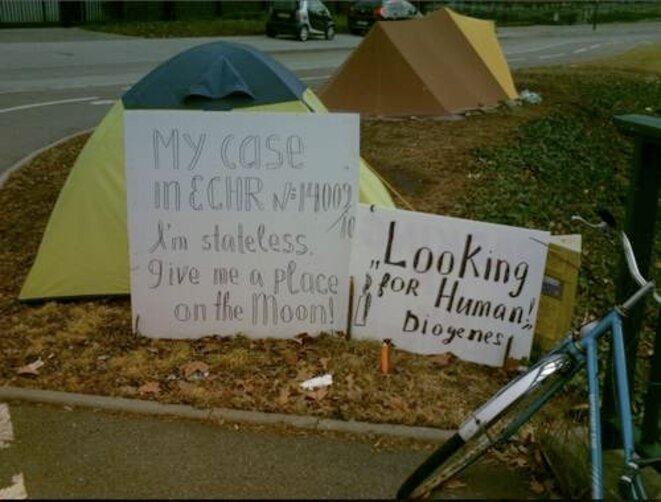 My case
in ECHR №14009
/10
I'm stateless.
give me a place
on the Moon!
„Looking
for Human!"
Diogenes